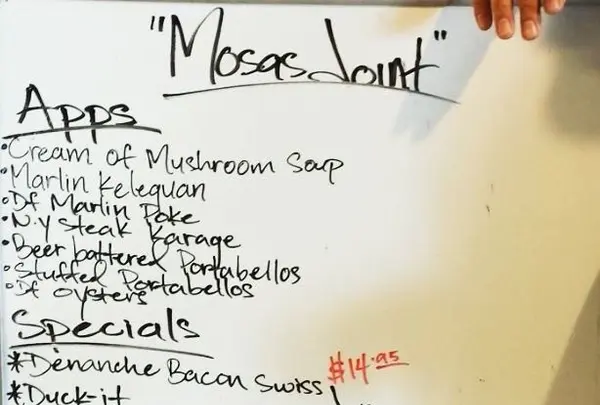 "Mosas Joint"
Apps
•Cream of Mushroom Soup
•Marlin Keleguan
•Df Marlin Poke
•N.y Steak Karage
•Beer battered Portabellos
•Stuffed Portabellos
•Df oysters
Specials
*Dènanche Bacon Swiss $14.95
*Duck-it